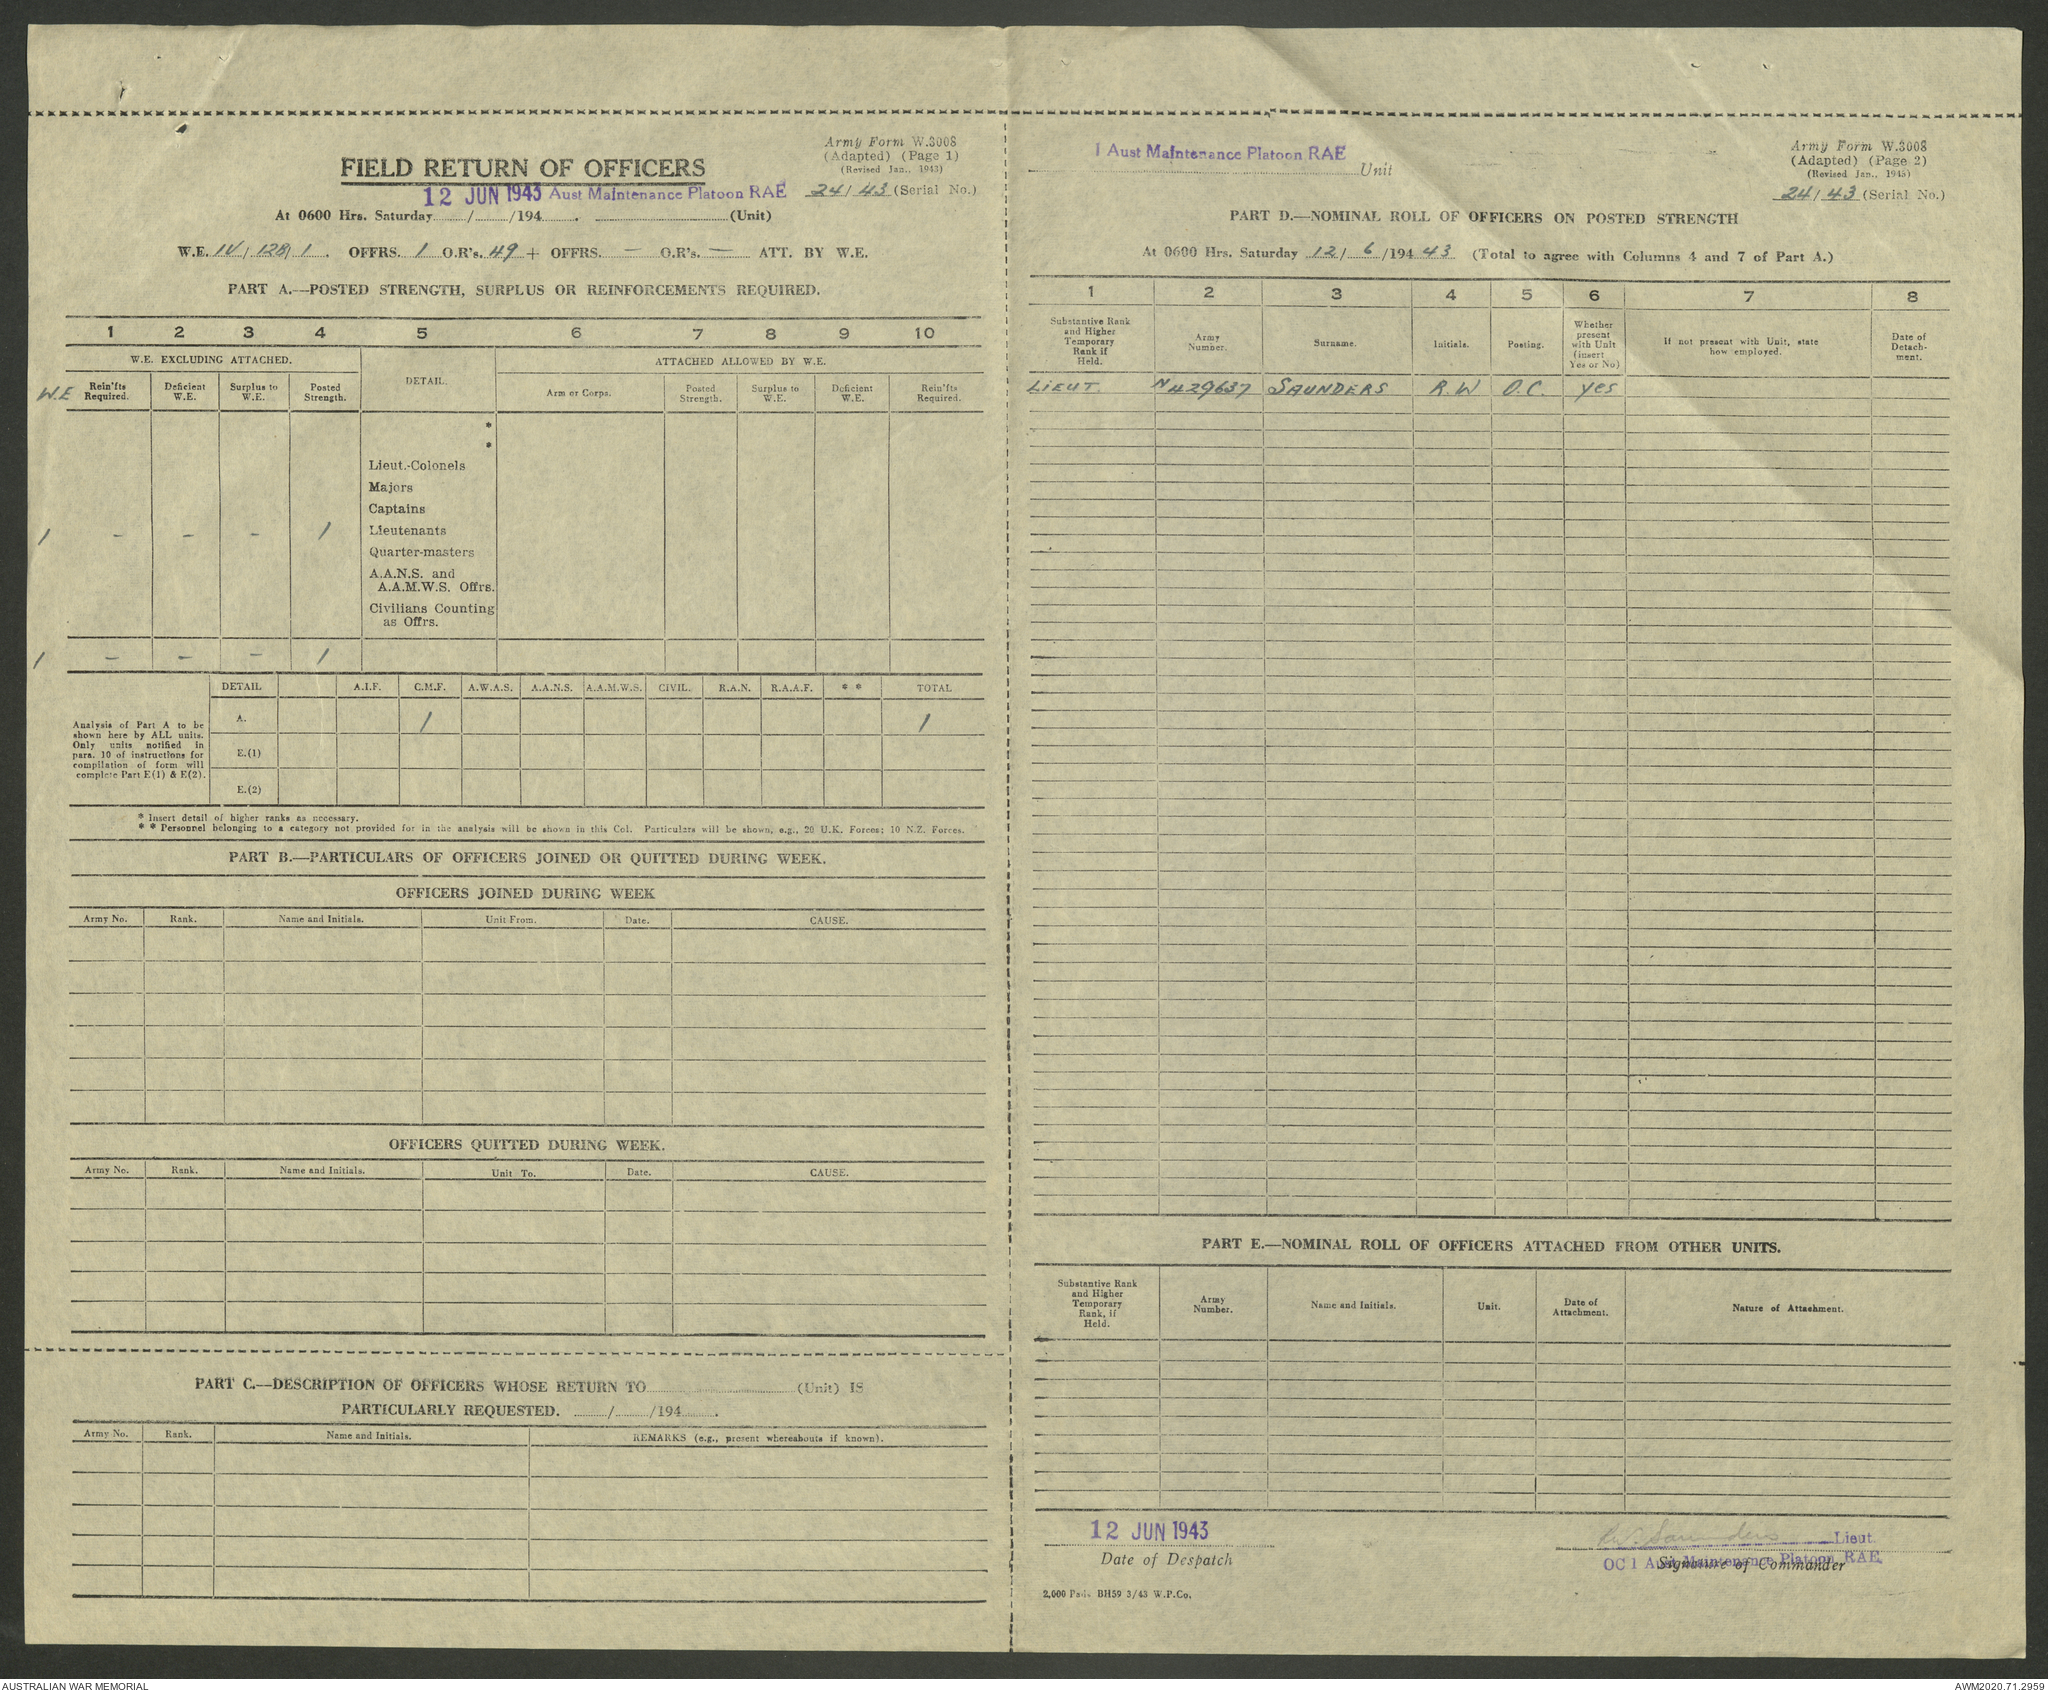 Army Form W.3008
(Adapted) (Page 1)
(Revised Jan., 1943)
FIELD RETURN OF OFFICERS
12 JUN 1943 Aust Maintenance Platoon RAE 24/43 (Serial No.)
At 0600 Hrs. Saturday / /194 . (Unit)
W.E. IV/128/1. OFFRS. 1 O.R's. 49 + OFFRS. — O.R's. — ATT. BY W.E.
PART A.—POSTED STRENGTH, SURPLUS OR REINFORCEMENTS REQUIRED.
1 2 3 4 5 6 7 8 9 10
W.E. EXCLUDING ATTACHED. DETAIL. ATTACHED ALLOWED BY W.E.
W.E Rein'fts Required. Deficient W.E. Surplus to W.E. Posted Strength. Arm or Corps. Posted Strength. Surplus to W.E. Deficient W.E. Rein'fts Required.
*
*
Lieut.-Colonels
Majors
Captains
1 - - - 1 Lieutenants
Quarter-masters
A.A.N.S. and
A.A.M.W.S. Offrs.
Civilians Counting
as Offrs.
1 - - - 1
DETAIL A.I.F. C.M.F. A.W.A.S. A.A.N.S. A.A.M.W.S. CIVIL. R.A.N. R.A.A.F. * * TOTAL
Analysis of Part A to be
shown here by ALL units.
Only units notified in
para. 10 of instructions for
compilation of form will
complete Part E(1) & E(2).
A. 1 1
E.(1)
E.(2)
* Insert detail of higher ranks as necessary.
* * Personnel belonging to a category not provided for in the analysis will be shown in this Col. Particulars will be shown, e.g., 20 U.K. Forces; 10 N.Z. Forces.
PART B.—PARTICULARS OF OFFICERS JOINED OR QUITTED DURING WEEK.
OFFICERS JOINED DURING WEEK
Army No. Rank. Name and Initials. Unit From. Date. CAUSE.
OFFICERS QUITTED DURING WEEK.
Army No. Rank. Name and Initials. Unit To. Date. CAUSE.
PART C.—DESCRIPTION OF OFFICERS WHOSE RETURN TO (Unit) IS
PARTICULARLY REQUESTED. / /194 .
Army No. Rank. Name and Initials. REMARKS (e.g., present whereabouts if known).
1 Aust Maintenance Platoon RAE Unit
Army Form W.3008
(Adapted) (Page 2)
(Revised Jan., 1943)
24/43 (Serial No.)
PART D.—NOMINAL ROLL OF OFFICERS ON POSTED STRENGTH
At 0600 Hrs. Saturday 12/6/194 43 (Total to agree with Columns 4 and 7 of Part A.)
1 2 3 4 5 6 7 8
Substantive Rank and Higher Temporary Rank if Held. Army Number. Surname. Initials. Posting. Whether present with Unit (insert Yes or No) If not present with Unit, state how employed. Date of Detachment.
LIEUT. N429637 SAUNDERS R.W O.C. yes
PART E.—NOMINAL ROLL OF OFFICERS ATTACHED FROM OTHER UNITS.
Substantive Rank and Higher Temporary Rank, if Held. Army Number. Name and Initials. Unit. Date of Attachment. Nature of Attachment.
12 JUN 1943
Date of Despatch
RW Saunders Lieut.
OC 1 Aust Maintenance Platoon RAE
Signature of Commander
2,000 Pads BH59 3/43 W.P.Co.
AUSTRALIAN WAR MEMORIAL
AWM2020.71.2959